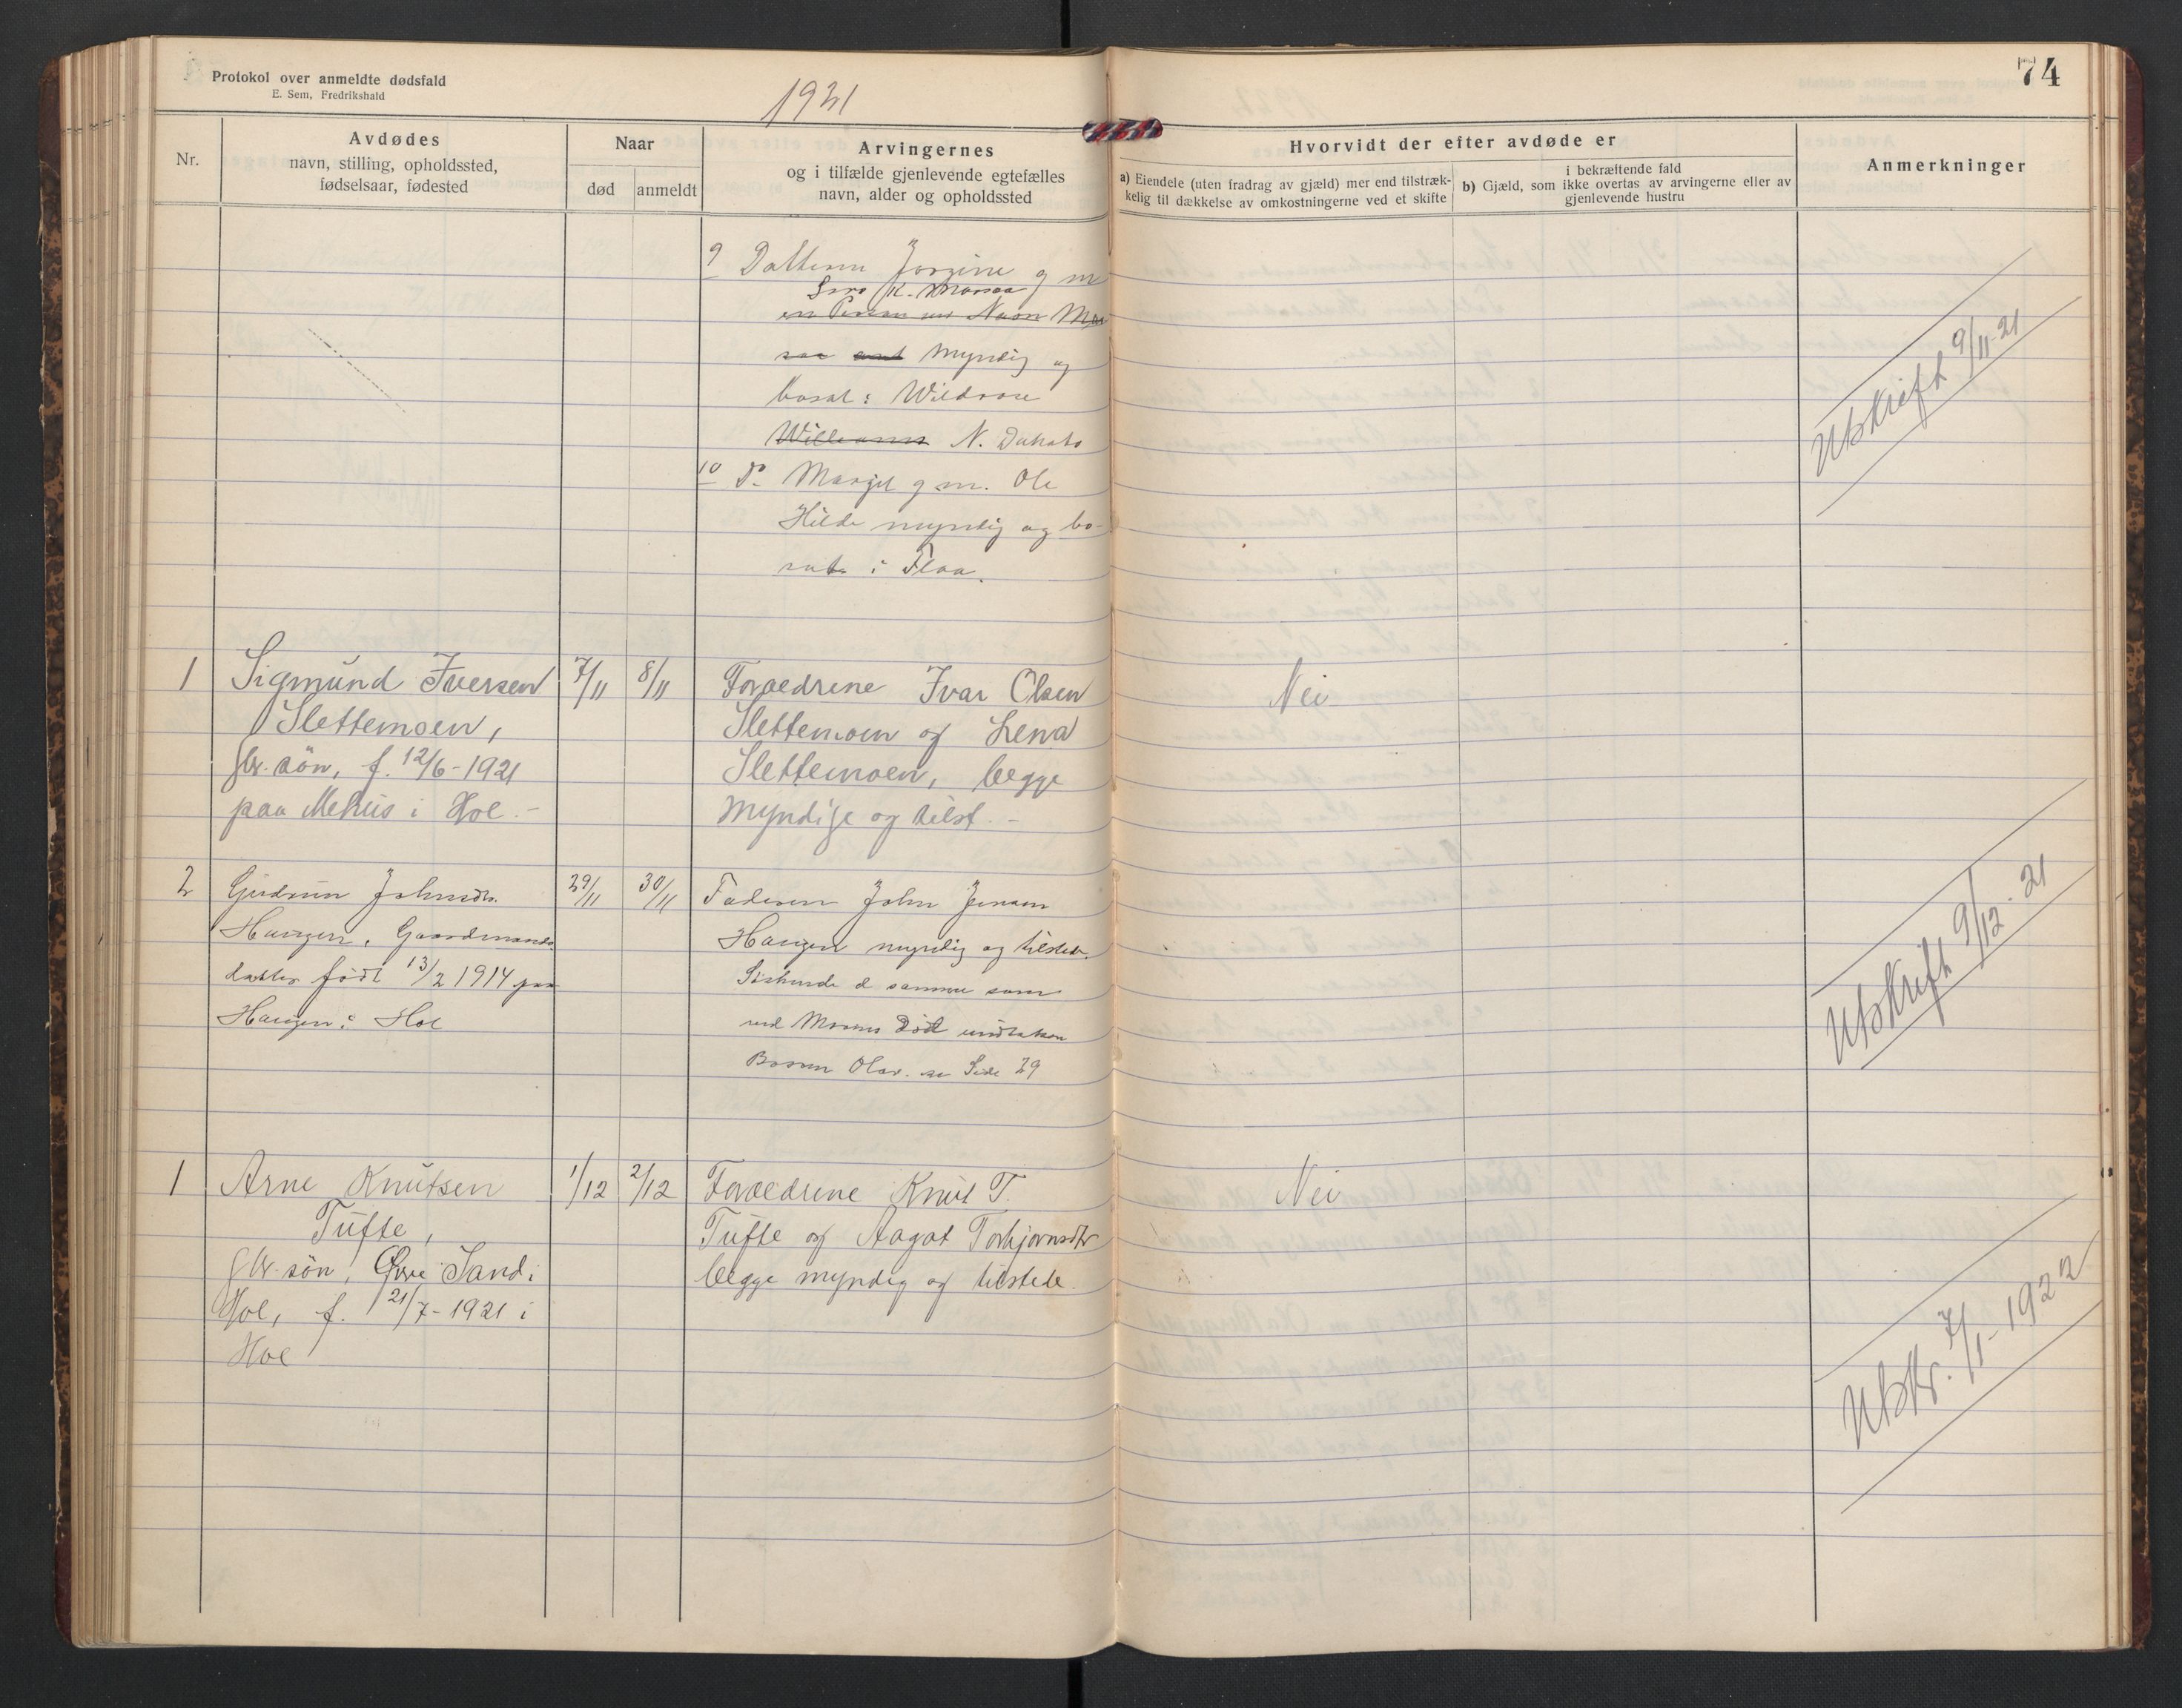 Protokol over anmeldte dødsfald
E. Sem, Fredrikshald
1921
74
Nr.
Avdødes
navn, stilling, opholdssted,
fødselsaar, fødested
Naar
død
anmeldt
Arvingernes
og i tilfælde gjenlevende egtefælles
navn, alder og opholdssted
Hvorvidt der efter avdøde er
a) Eiendele (uten fradrag av gjæld) mer end tilstræk-
kelig til dækkelse av omkostningerne ved et skifte
i bekræftende fald
b) Gjæld, som ikke overtas av arvingerne eller av
gjenlevende hustru
Anmerkninger
9 Datteren Jorgine g m
K.
en Person ved Navn
myndig og
bosat: Wildrose
Williams N. Dakota
10 Do Margit g m. Ole
Hilde myndig og bo-
sat i Flaa.
Utskrift 9/11-21
1 Sigmund Iversen 7/11 8/11 Forældrene Ivar Olsen Nei
Slettemoen, Slettemoen og Lena
gbr. søn, f. 12/6-1921 Slettemoen, begge
paa Mehus i Hol.- myndige og tilst.-
2 Gudrun Johnsdtr. 29/11 30/11 Faderen John Jensen
Haugen, Gaardmands Haugen myndig og tilstede.
datter født 13/2 1914 paa Søskende d samme som
Haugen i Hol ved Morens Død undtaken
Broren Olav. se Side 29
Utskrift 9/12-21
1 Arne Knutsen 1/12 2/12 Forældrene Knut T. Nei
Tufte, Tufte og Aagot Torbjørnsdtr
gbr. søn, Øvre Sand i begge myndig og tilstede.
Hol, f. 21/7-1921 i
Hol
Utskr. 7/1-1922